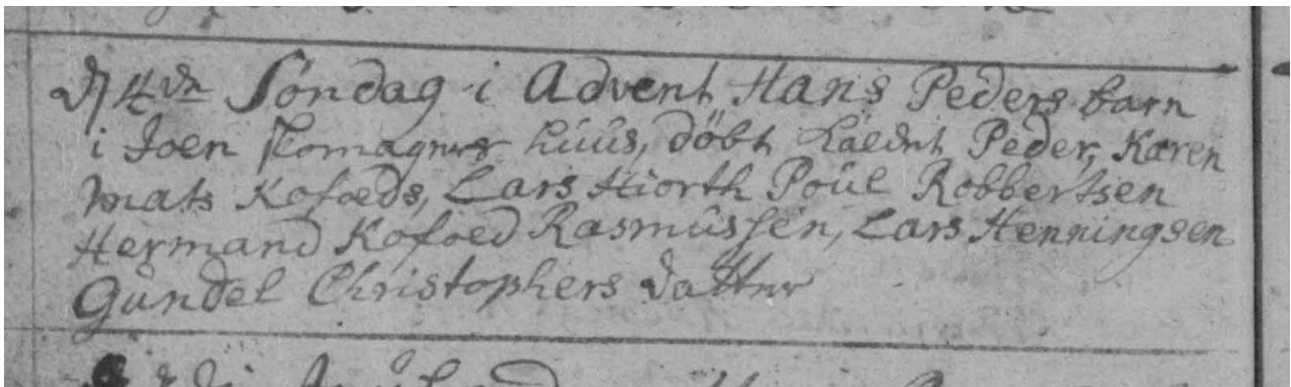 4de Søndag i Advent, Hans Peders barn
i Joen Skomagers huus, döbt kaldet Peder, Karen
Mats Kofoeds, Lars Hiorth Poül Robbertsen
Hermand Kofoed Rasmüssen, Lars Henningsen
Gundel Christophers datter